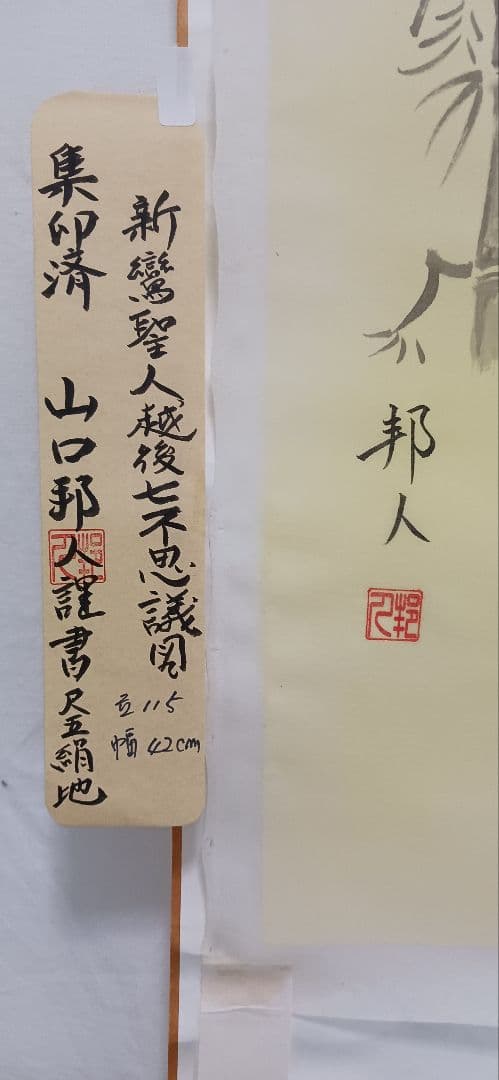 新鸞聖人越後七不思議図
立115
幅42cm
集印済 山口邦人謹書 尺五絹地
邦人
邦人